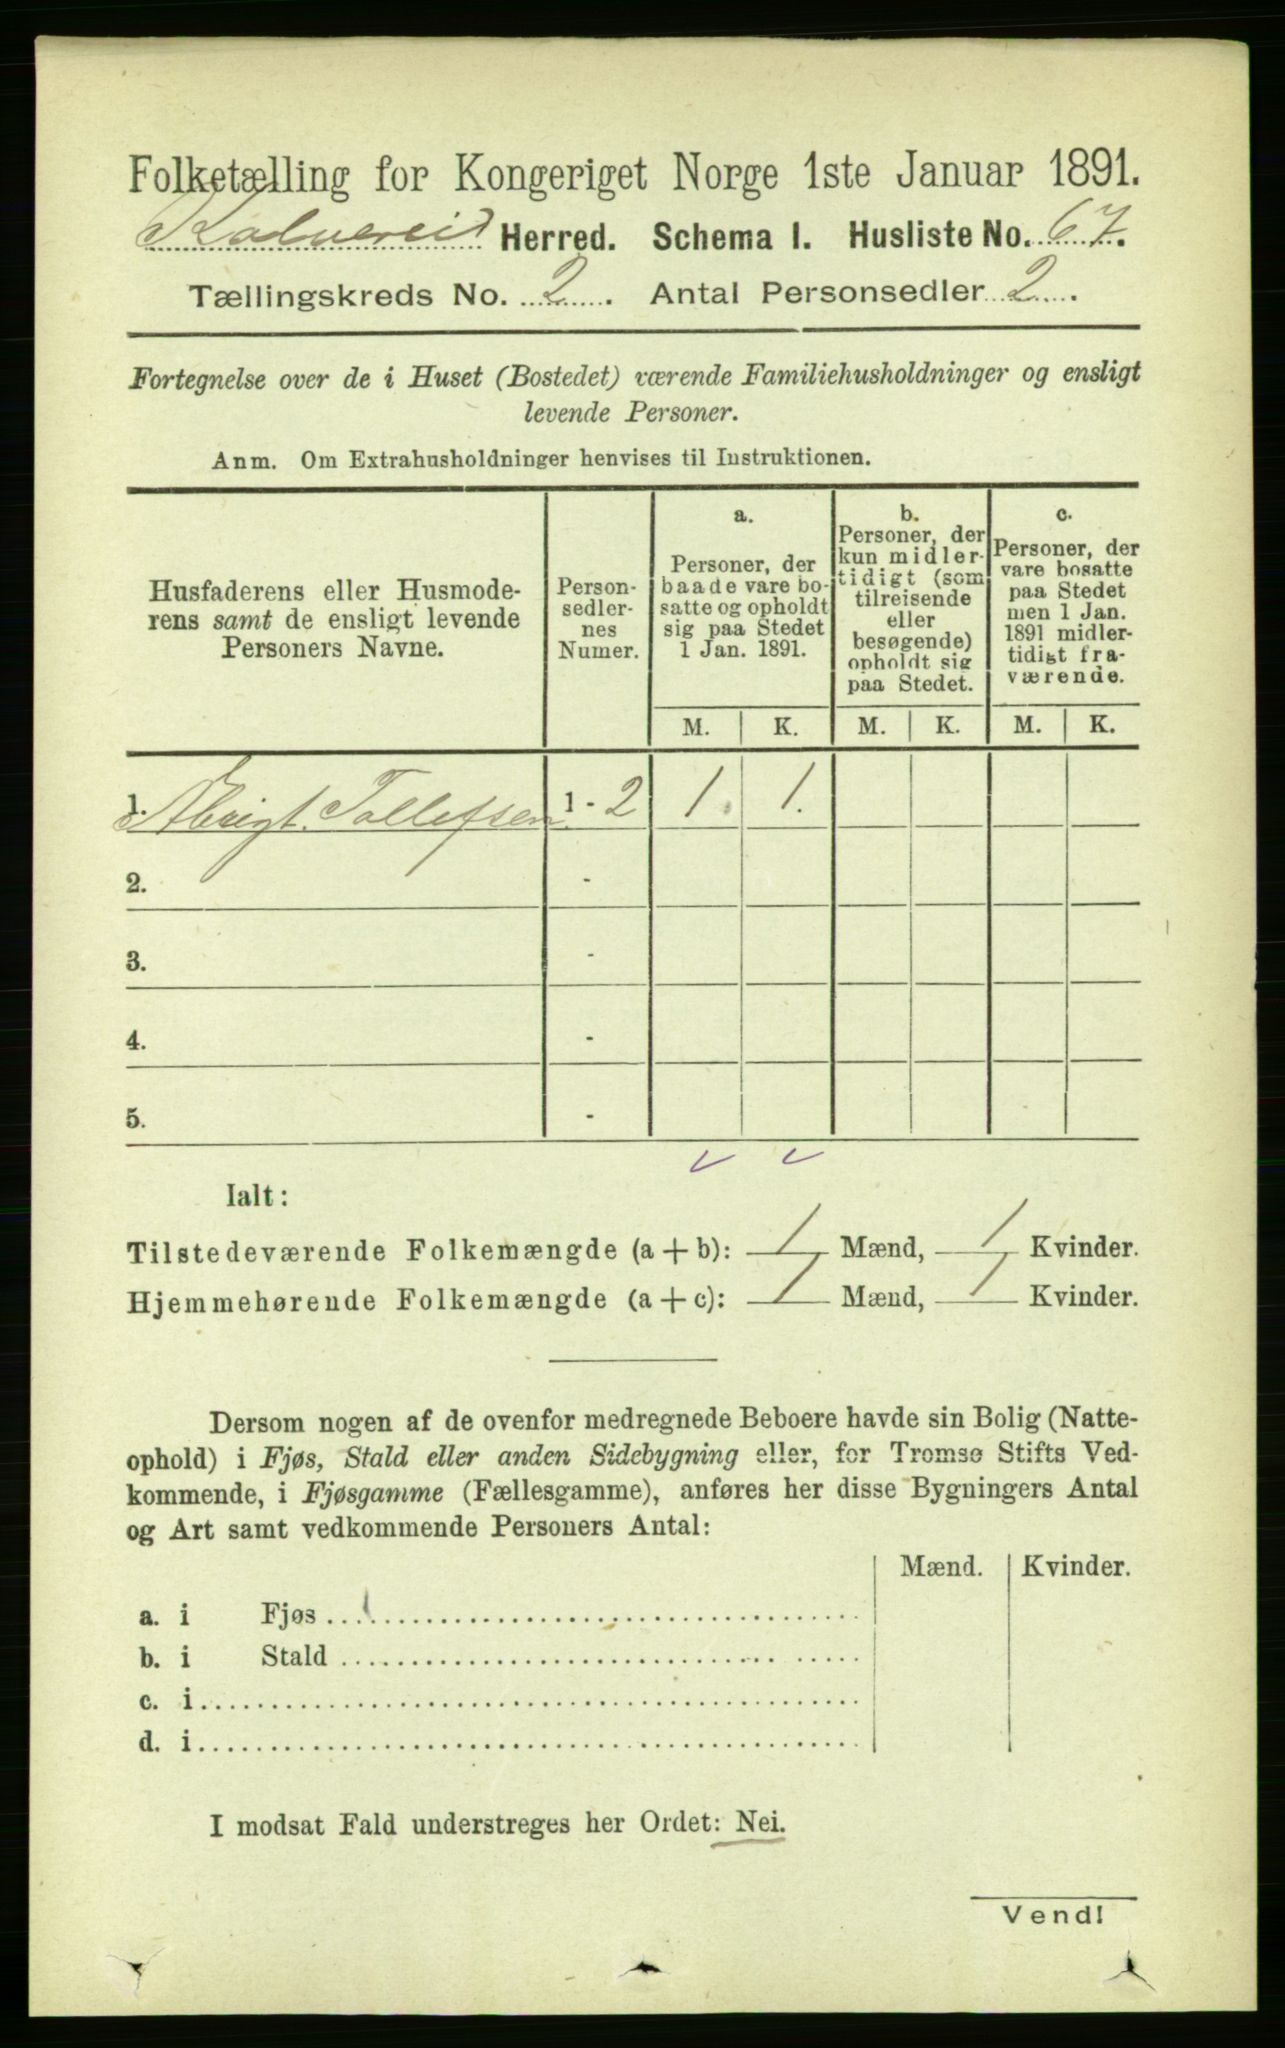 Folketælling for Kongeriget Norge 1ste Januar 1891.
Kolvereid Herred. Schema I. Husliste No. 67.
Tællingskreds No. 2. Antal Personsedler 2.
Fortegnelse over de i Huset (Bostedet) værende Familiehusholdninger og ensligt
levende Personer.
Anm. Om Extrahusholdninger henvises til Instruktionen.
Husfaderens eller Husmode-
rens samt de ensligt levende
Personers Navne.
Person-
sedler-
nes
Numer.
a.
Personer, der
baade vare bo-
satte og opholdt
sig paa Stedet
1 Jan. 1891.
b.
Personer, der
kun midler-
tidigt (som
tilreisende
eller
besøgende)
opholdt sig
paa Stedet.
c.
Personer, der
vare bosatte
paa Stedet
men 1 Jan.
1891 midler-
tidigt fra-
værende.
M. K. M. K. M. K.
1. Tollefsen 1 - 2 1. 1.
2. -
3. -
4. -
5. -
Ialt:
Tilstedeværende Folkemængde (a + b): 1 Mænd, 1 Kvinder.
Hjemmehørende Folkemængde (a + c): 1 Mænd, 1 Kvinder.
Dersom nogen af de ovenfor medregnede Beboere havde sin Bolig (Natte-
ophold) i Fjøs, Stald eller anden Sidebygning eller, for Tromsø Stifts Ved-
kommende, i Fjøsgamme (Fællesgamme), anføres her disse Bygningers Antal
og Art samt vedkommende Personers Antal:
Mænd. Kvinder.
a. i Fjøs
b. i Stald
c. i
d. i
I modsat Fald understreges her Ordet: Nei.
Vend!